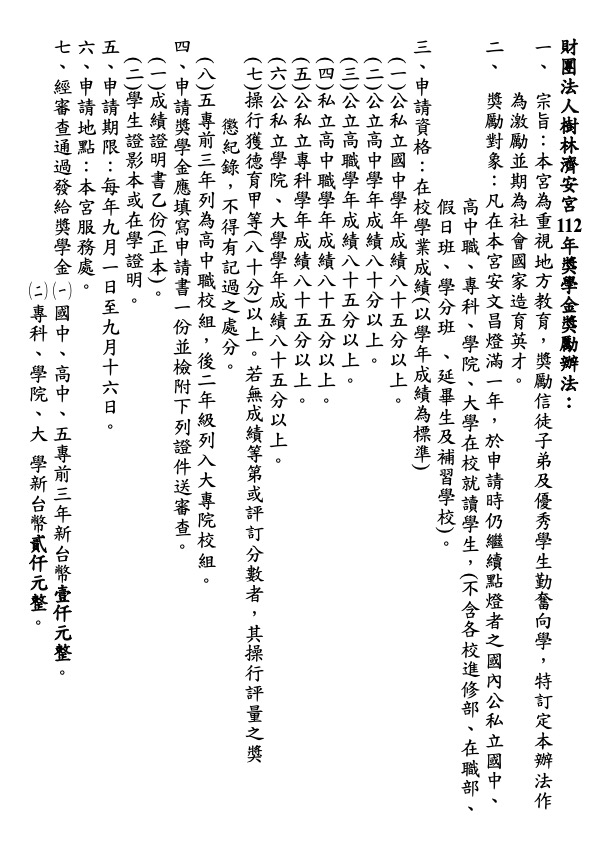 財團法人樹林濟安宮112年獎學金獎勵辦法：
一、 宗旨：本宮為重視地方教育，獎勵信徒子弟及優秀學生勤奮向學，特訂定本辦法作
為激勵並期為社會國家造育英才。
二、 獎勵對象：凡在本宮安文昌燈滿一年，於申請時仍繼續點燈者之國內公私立國中、
高中職、專科、學院、大學在校就讀學生，(不含各校進修部、在職部、
假日班、學分班 、延畢生及補習學校)。
三、申請資格：在校學業成績(以學年成績為標準)
(一)公私立國中學年成績八十五分以上。
(二)公立高中學年成績八十分以上。
(三)公立高職學年成績八十五分以上。
(四)私立高中職學年成績八十五分以上。
(五)公私立專科學年成績八十五分以上。
(六)公私立學院、大學學年成績八十五分以上。
(七)操行獲德育甲等(八十分)以上。若無成績等第或評訂分數者，其操行評量之獎
懲紀錄，不得有記過之處分。
(八)五專前三年列為高中職校組，後二年級列入大專院校組。
四、申請獎學金應填寫申請書一份並檢附下列證件送審查。
(一)成績證明書乙份(正本)。
(二)學生證影本或在學證明。
五、申請期限：每年九月一日至九月十六日。
六、申請地點：本宮服務處。
七、經審查通過發給獎學金㈠國中、高中、五專前三年新台幣壹仟元整。
㈡專科、學院、大 學新台幣貳仟元整。